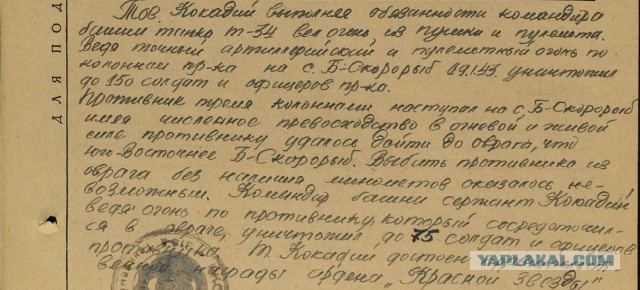 Тов. Кокадий выполняя обязанности командира
башни танка Т-34 вел огонь из пушки и пулемета.
Ведя точный артиллерийский и пулеметный огонь по
колоннам пр-ка на с. Б-Скорорыб 19.1.43. уничтожил
до 150 солдат и офицеров пр-ка.
Противник тремя колоннами наступал на с. Б-Скорорыб
имея численное превосходство в огневой и живой
силе противнику удалось дойти до оврага, что
юго-Восточнее Б-Скорорыб. Выбить противника из
оврага без наличия минометов оказалось не-
возможным. Командир башни сержант Кокадий
ведя огонь по противнику, который сосредоточил-
ся в овраге, уничтожил до 75 солдат и офицеров
противника. Т. Кокадий достоин
награды ордена „Красной Звезды"
ДЛЯ ПОД
YAPLAKAL.COM